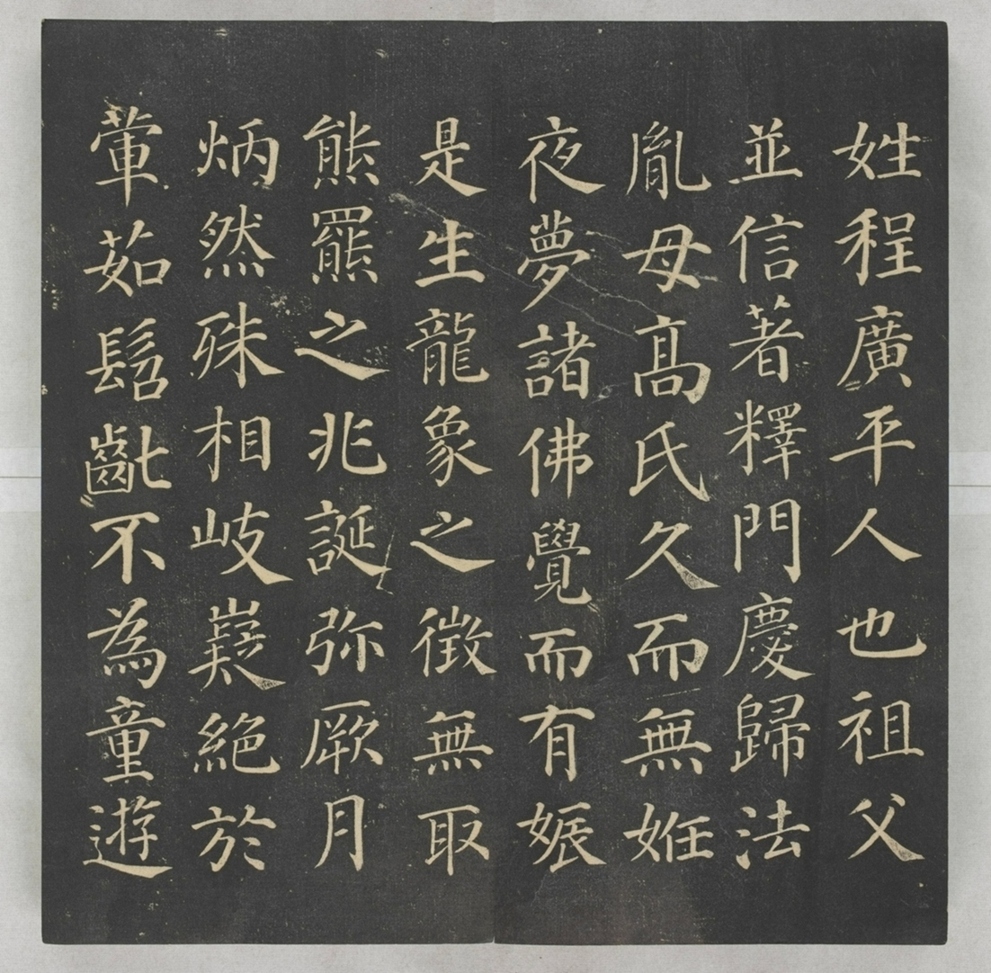 姓程廣平人也祖父
並信著釋門慶歸法
胤母髙氏久而無姙
夜夢諸佛覺而有娠
是生龍象之徵無取
熊羆之兆誕弥厥月
炳然殊相岐嶷絶於
葷茹髫齔不為童遊